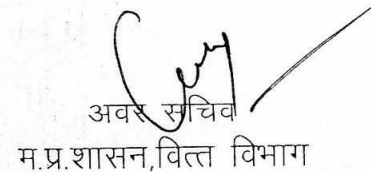 अवर सचिव
म.प्र.शासन,वित्त विभाग